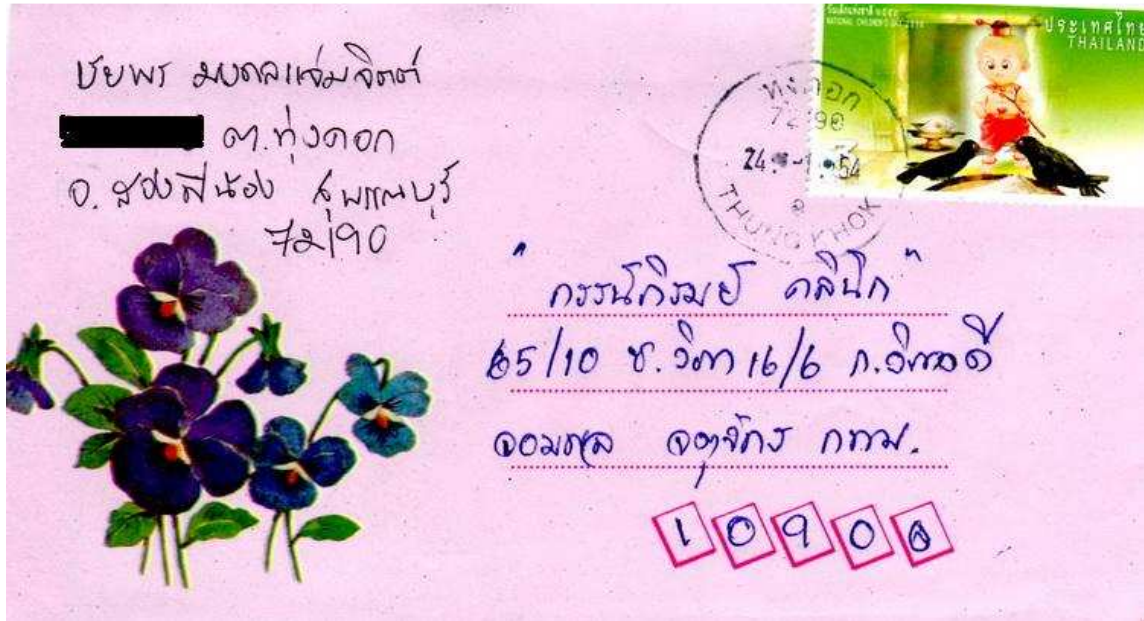 ชัยพร มงคลแจ่มจิตต์
ต.ทุ่งคอก
อ. สองพี่น้อง สุพรรณบุรี
72190
วันเด็กแห่งชาติ
NATIONAL CHILDREN'S DAY
ประเทศไทย
THAILAND
3
ทุ่งคอก
72190
54
THUNG KHOK
" คลินิก"
65/10 ซ.วิภา 16/6 ถ.วิภาวดี
จอมพล จตุจักร กทม.
10900